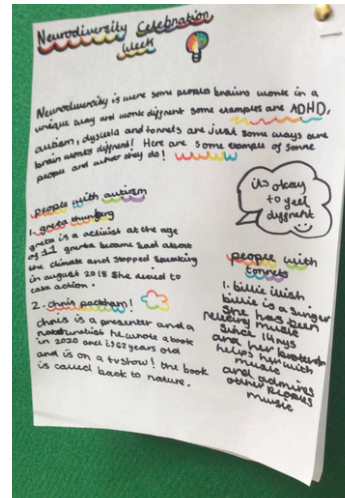 Neurodiversity Celebration
Week
Neurodiversity is were some peoples brains wonk in a
unique way and wonk diffrent some examples are ADHD,
autism, dyslexia and torrets are just some ways oure
brain wonks diffrent! Here are some example of some
people and wther they do!
people with autism
1. greta thunberg
greta is a activist at the age
of 11 greta became sad about
the climate and stopped speaking
in august 2018 she decied to
take action.
2. chris packham!
chris is a presenter and a
naturalist he wrote a book
in 2020 and is 62 years old
and is on a tv show! the book
is called back to nature.
it's okay
to feel
diffrent
people with
torrets
1. billie ilish
billie is a singer
she has been
relecing music
since 14 yrs
and her brother
helps her with
music
and admires
other peoples
music